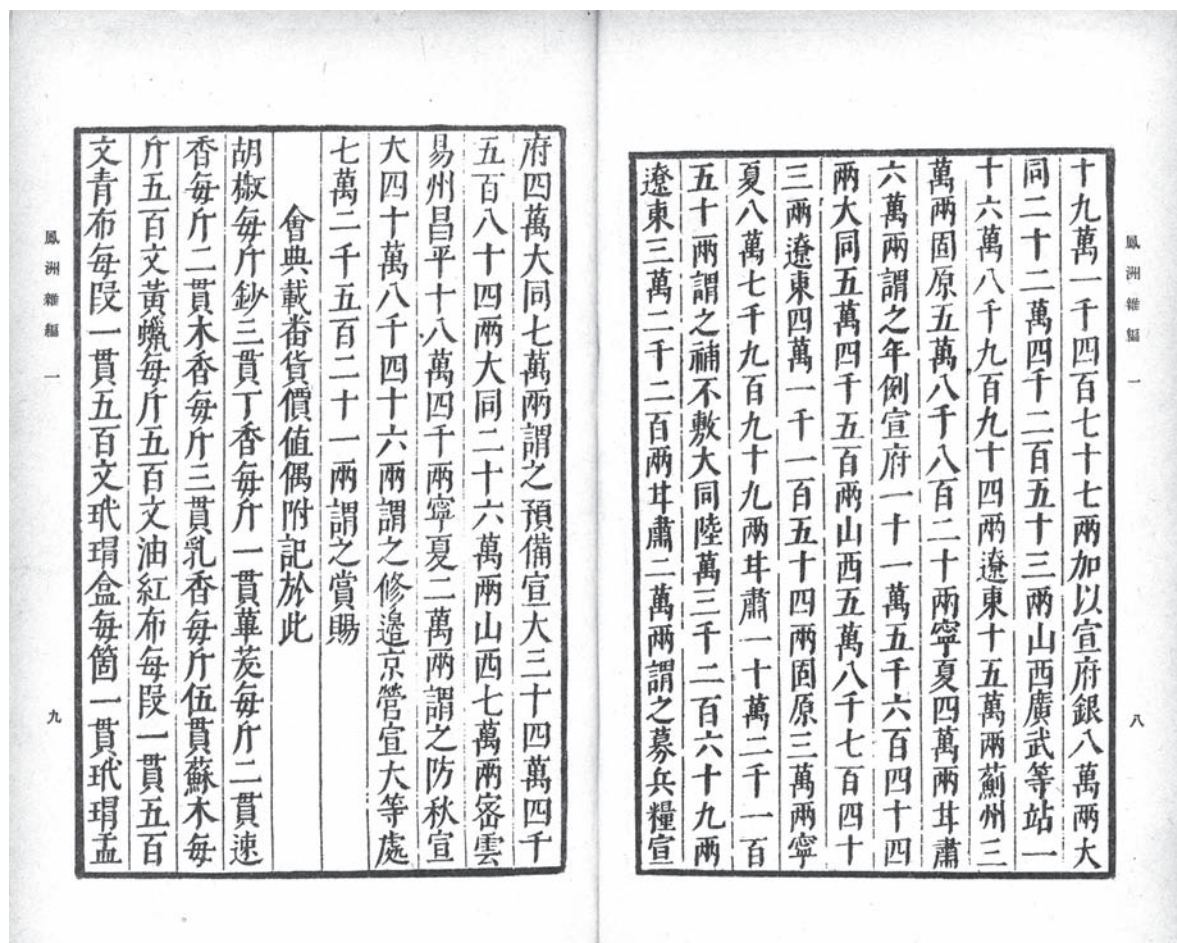 鳳洲雜編 一
八
十九萬一千四百七十七兩加以宣府銀八萬兩大
同二十二萬四千二百五十三兩山西廣武等站一
十六萬八千九百九十四兩遼東十五萬兩薊州三
萬兩固原五萬八千八百二十兩寧夏四萬兩甘肅
六萬兩謂之年例宣府一十一萬五千六百四十四
兩大同五萬四千五百兩山西五萬八千七百四十
三兩遼東四萬一千一百五十四兩固原三萬兩寧
夏八萬七千九百九十九兩甘肅一十萬二千一百
五十兩謂之補不敷大同陸萬三千二百六十九兩
遼東三萬二千二百兩甘肅二萬兩謂之募兵糧宣
府四萬大同七萬兩謂之預備宣大三十四萬四千
五百八十四兩大同二十六萬兩山西七萬兩密雲
易州昌平十八萬四千兩寧夏二萬兩謂之防秋宣
大四十萬八千四十六兩謂之修邊京營宣大等處
七萬二千五百二十一兩謂之賞賜
會典載畨貨價值偶附記於此
胡椒每斤鈔三貫丁香每斤一貫蓽茇每斤二貫速
香每斤二貫木香每斤三貫乳香每斤伍貫蘇木每
斤五百文黃蠟每斤五百文油紅布每段一貫五百
文青布每段一貫五百文玳瑁盒每箇一貫玳瑁盂
鳳洲雜編 一
九